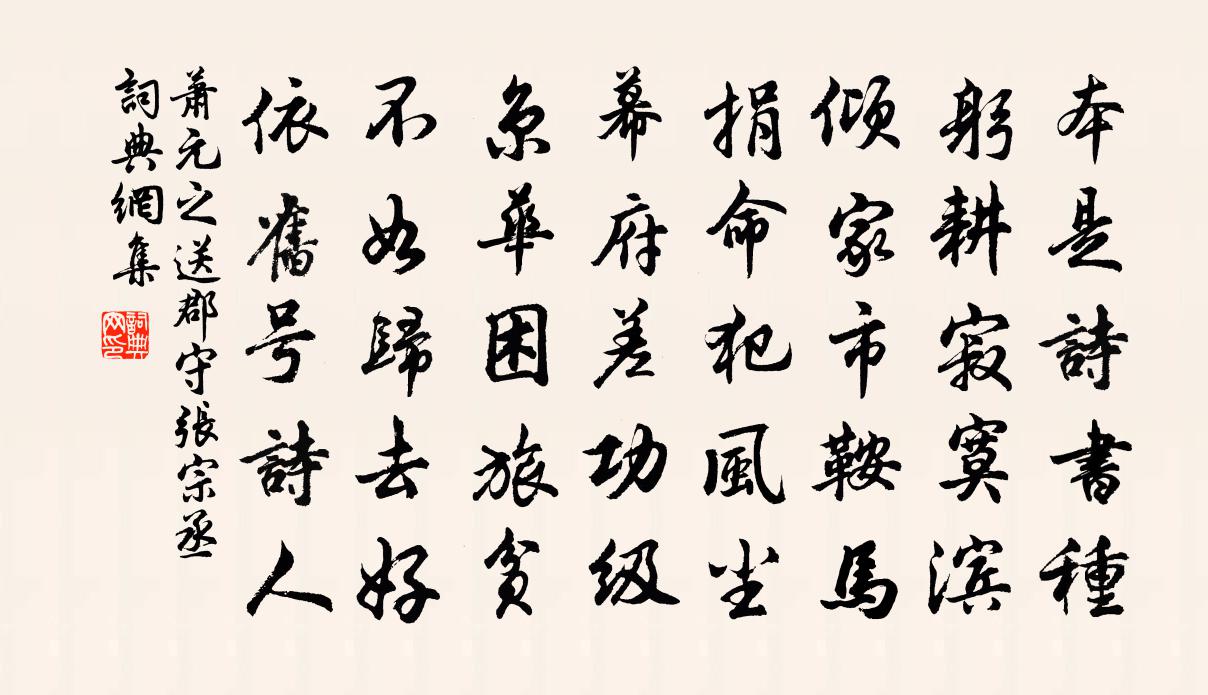 本是詩書種
躬耕寂寞滨
倾家市鞍馬
捐命犯風尘
幕府差功级
京華困旅贫
不如歸去好
依舊号詩人
萧元之送郡守張宗丞
詞典網集
詞典网印